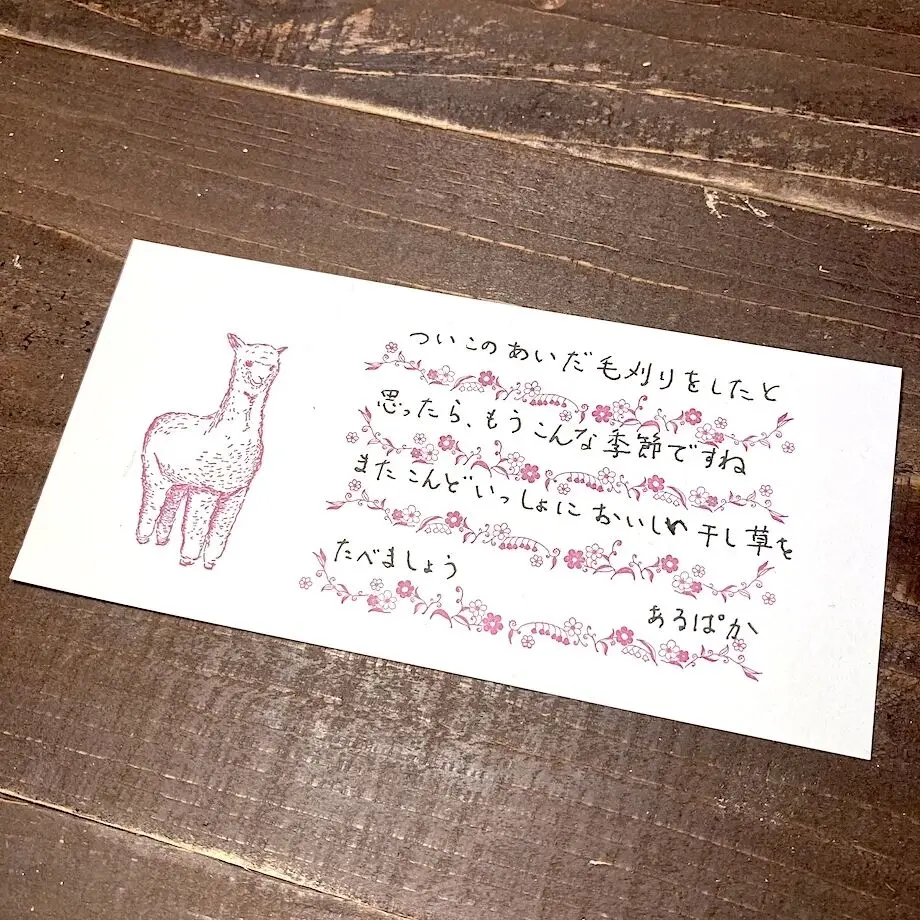 ついこのあいだ毛刈りをしたと
思ったら、もうこんな季節ですね
またこんどいっしょにおいしい干し草を
たべましょう
あるぱか